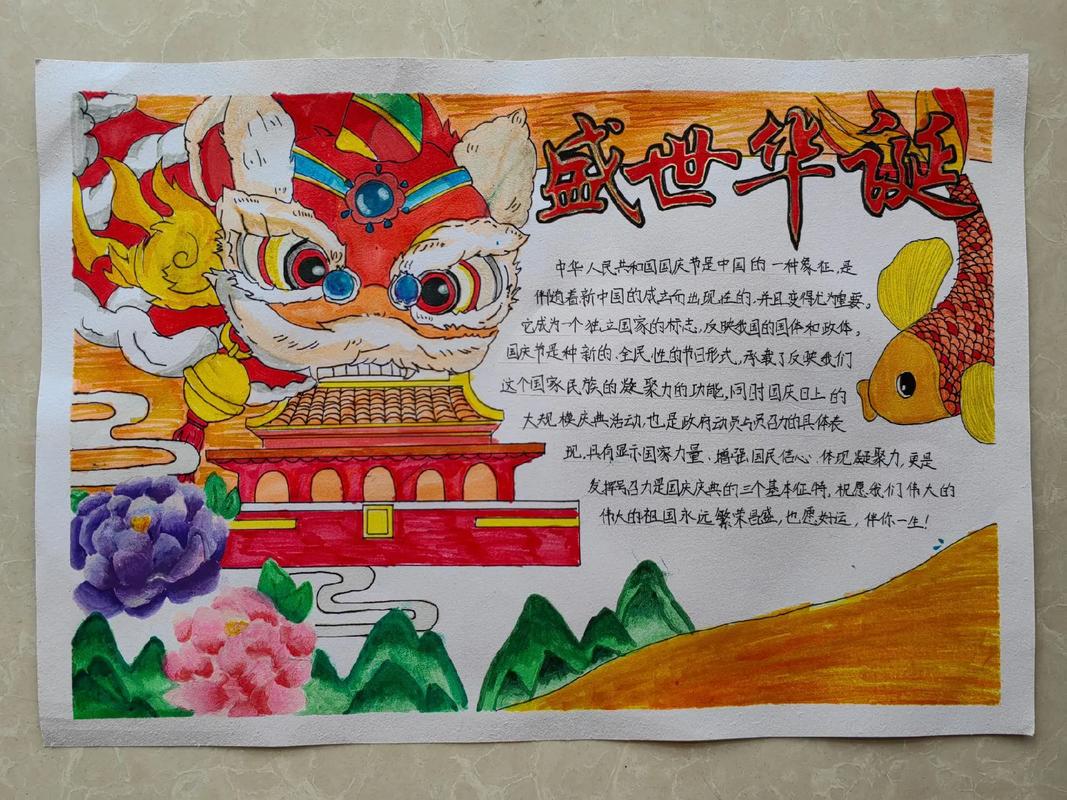 盛世华诞
中华人民共和国国庆节是中国的一种象征,是
伴随着新中国的成立而出现的,并且变得尤为重要。
它成为一个独立国家的标志,反映我国的国体和政体。
国庆节是种新的、全民性的节日形式,承载了反映我们
这个国家民族的凝聚力的功能,同时国庆日上的
大规模庆典活动,也是政府动员与号召力的具体表
现,具有显示国家力量、增强国民信心、体现凝聚力,更是
发挥号召力是国庆庆典的三个基本征特,祝愿我们伟大的
伟大的祖国永远繁荣昌盛,也愿好运,伴你一生!